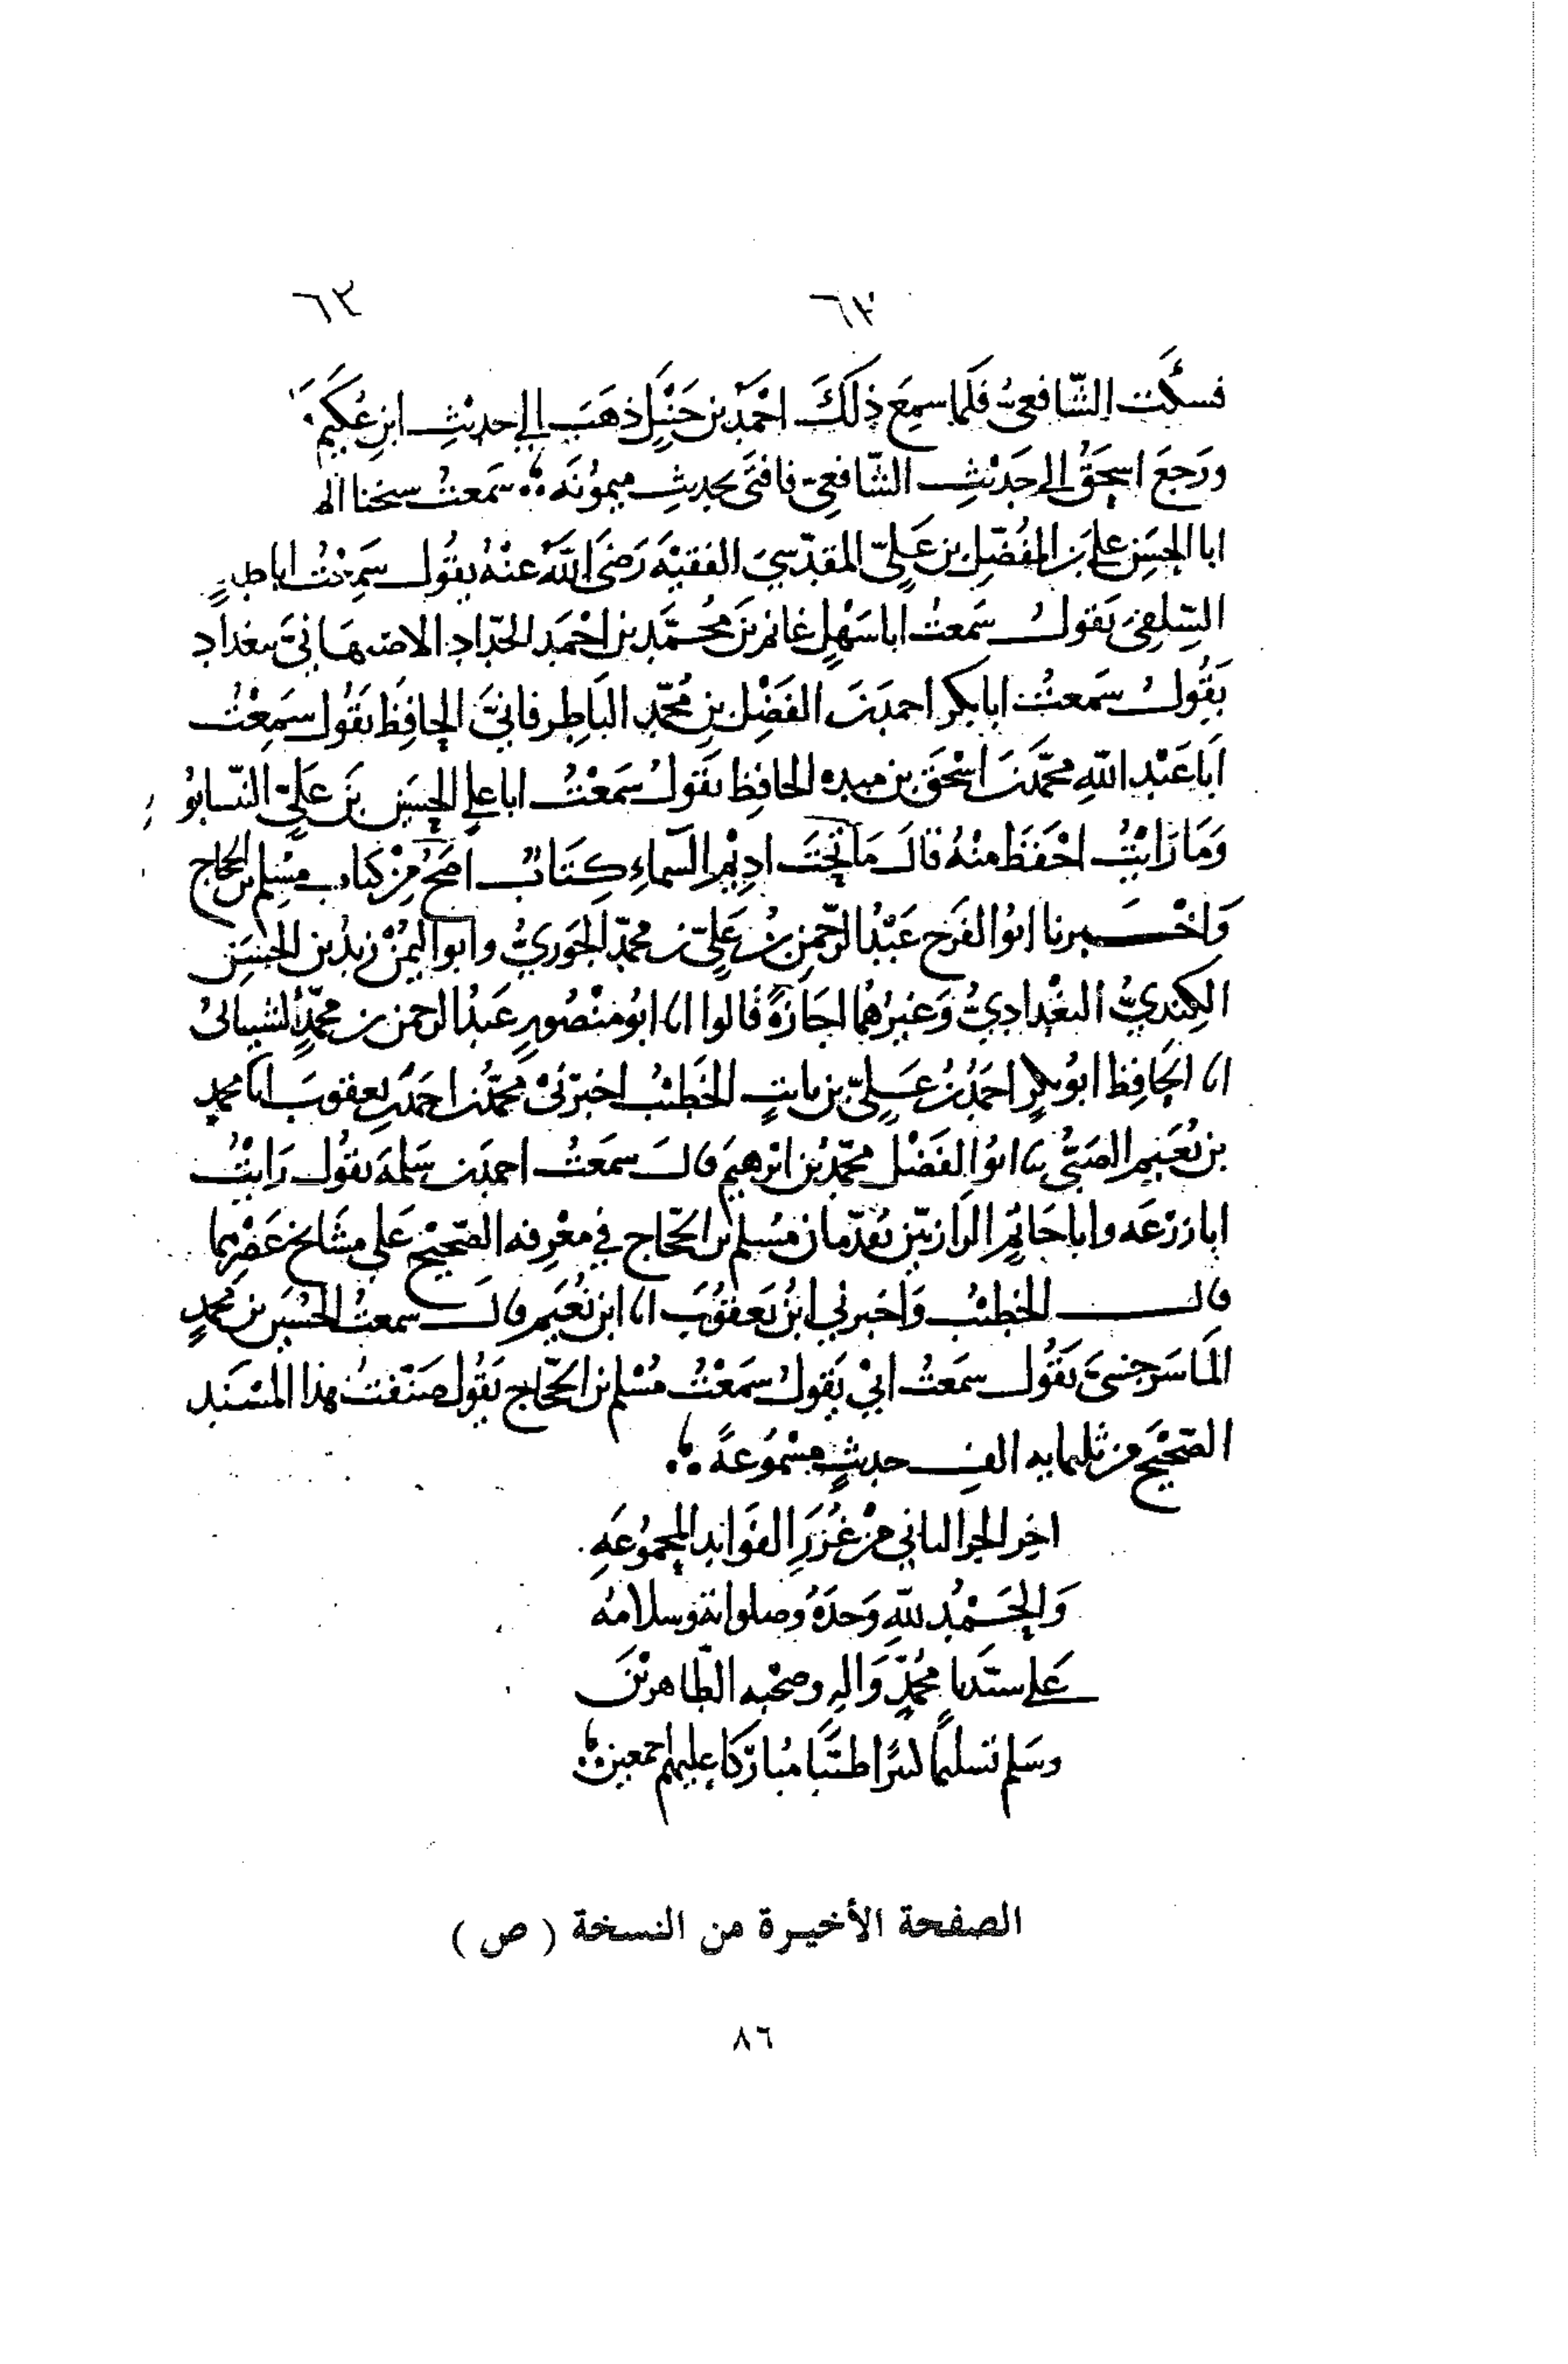 ٦٢ ٦٢
فسكت الشّافعيّ فَلَما سمِعَ ذلكَ احْمَدُ بن حَنْبلٍ ذهَبَ إلى حديثِ ابنِ عُكَيم
ورَجعَ اسحَقُ الى حَدِيْثِ الشّافعيّ فافتَى بحديثِ ميمونَه سَمعتُ شيخنا
ابا الحسَنِ علي بن المُفضّلِ بن عَليّ المقدّسيَ الفقيْهَ رَضيَ اللهُ عنْهُ يقُول سَمِعْتُ اباطاهرٍ
السِّلفيَ يَقولُ سَمعتُ اباسَهْلٍ غانم بنَ مُحمَّد بن احْمَد الحَدّاد الاصبَهانيَّ ببغداد
يَقُولُ سَمعتُ ابابكر احمدَ بنَ الفَضْل بنِ مُحمّد الباطرقانيَّ الحافِظَ يقُول سَمِعْتُ
اَبا عَبْد اللهِ محمَّد بنَ اسْحَقَ بن منده الحافِظَ يَقولُ سَمعْتُ ابا علي الحسَين بنَ عَليّ النّيسابو
وَمَا رَايْتُ احْفَظَ منْهُ قالَ مَا تَحْتَ اديْم السّماءِ كتَابٌ اَصَحُّ مِنْ كتاب مسْلم بن الحجاج
وَاخْبرنا ابوُ الفَرَج عَبْدُ الرّحمنِ بنُ عَليّ بن محمّدٍ الجَوزيُّ وابو اليُمْن زيدُ بن الحسَن
الكِنديُّ البغْداديُّ وَغيرُهما اجَازةً قالوا انا ابوُ منْصُورٍ عَبْدُ الرحمن بن محمّدٍ الشيبانيُ
انا الحَافِظ ابوُ بكرٍ احمَدُ بنُ عَليّ بن ثابتٍ الخَطيْبُ اخبَرنيْ محمَّدُ بن احمدَ بن يعقوبَ انا محمد
بن نُعَيم الضبّيُّ ثنا ابوُ الفَضْل محمّدُ بن ابرهيمَ قالَ سمَعتُ احمدَ بن سَلمةَ يقُول رَايْتُ
ابا زرْعَه وابا حَاتمٍ الرازيّين يُقدّمان مُسلم بن الحَجّاج في معْرفه الصّحيْح عَلى مشَايخ عَصْرهما
قالَ الخطيْبُ وَاخبرني ابنُ يَعقوُبَ انا ابن نُعَيم قالَ سمعتُ الحسَين بن محمدٍ
المَاسَرجسيَّ يَقُول سمَعتُ ابيْ يَقولُ سَمعْتُ مُسْلم بن الحَجّاج يَقُول صَنّفتُ هذا المسْنَد
الصّحيْحَ من ثلثمايه الف حديثٍ مسْموُعةً
اخِر الجزالثاني منْ غُرَرِ الفَوَايدِ المجموُعَهِ
وَالحَمْدُ للهِ وَحدَهُ وصلواتهُ وسلامُهُ
عَلى سيّدنا محُمّدٍ وَالهِ وصحْبه الطّاهريْنَ
وسَلم تسليمًا كثيرًا طيّبًا مُبارَكا عليهم اجمعين
الصفحة الأخيرة من النسخة ( ص )
٨٦